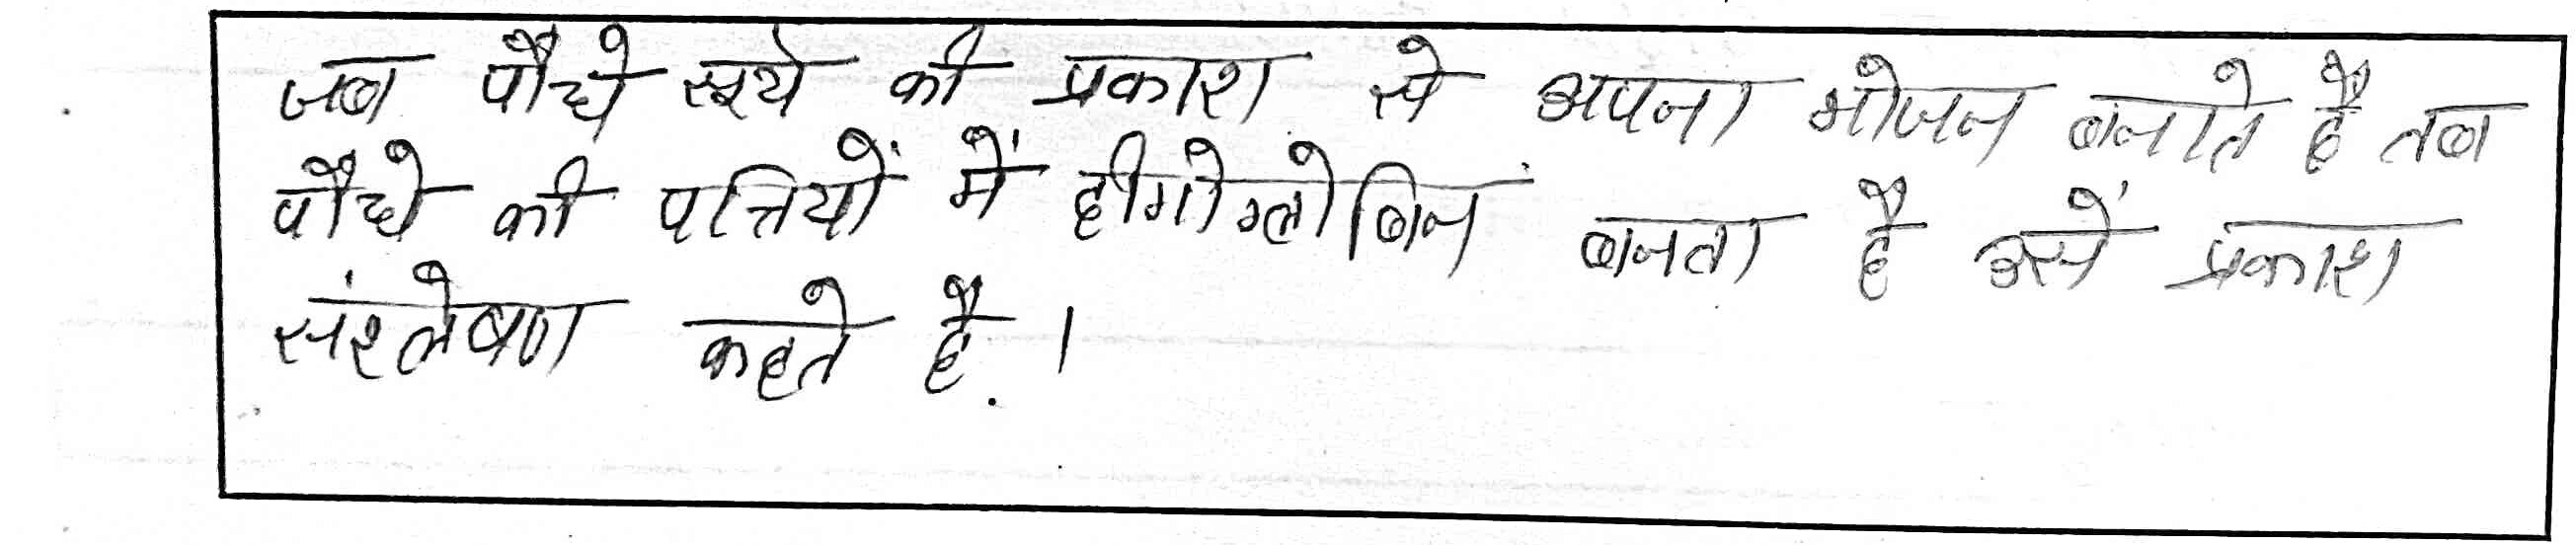 जब पौधे सूर्य की प्रकाश से अपना भोजन बनाते है तब
पौधे की पत्तियों में हीगोग्लोबिन बनता है उसे प्रकाश
संश्लेषण कहते है।